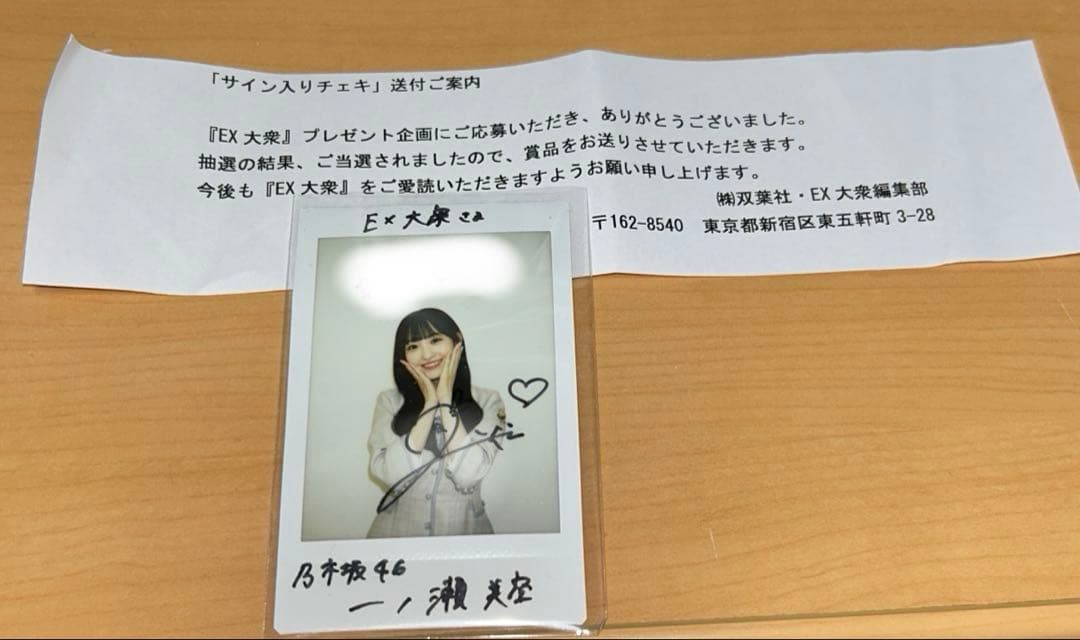 「サイン入りチェキ」送付ご案内
『EX 大衆』プレゼント企画にご応募いただき、ありがとうございました。
抽選の結果、ご当選されましたので、賞品をお送りさせていただきます。
今後も『EX 大衆』をご愛読いただきますようお願い申し上げます。
㈱双葉社・EX 大衆編集部
〒162-8540 東京都新宿区東五軒町 3-28
EX 大衆さま
乃木坂46
一ノ瀬 美空